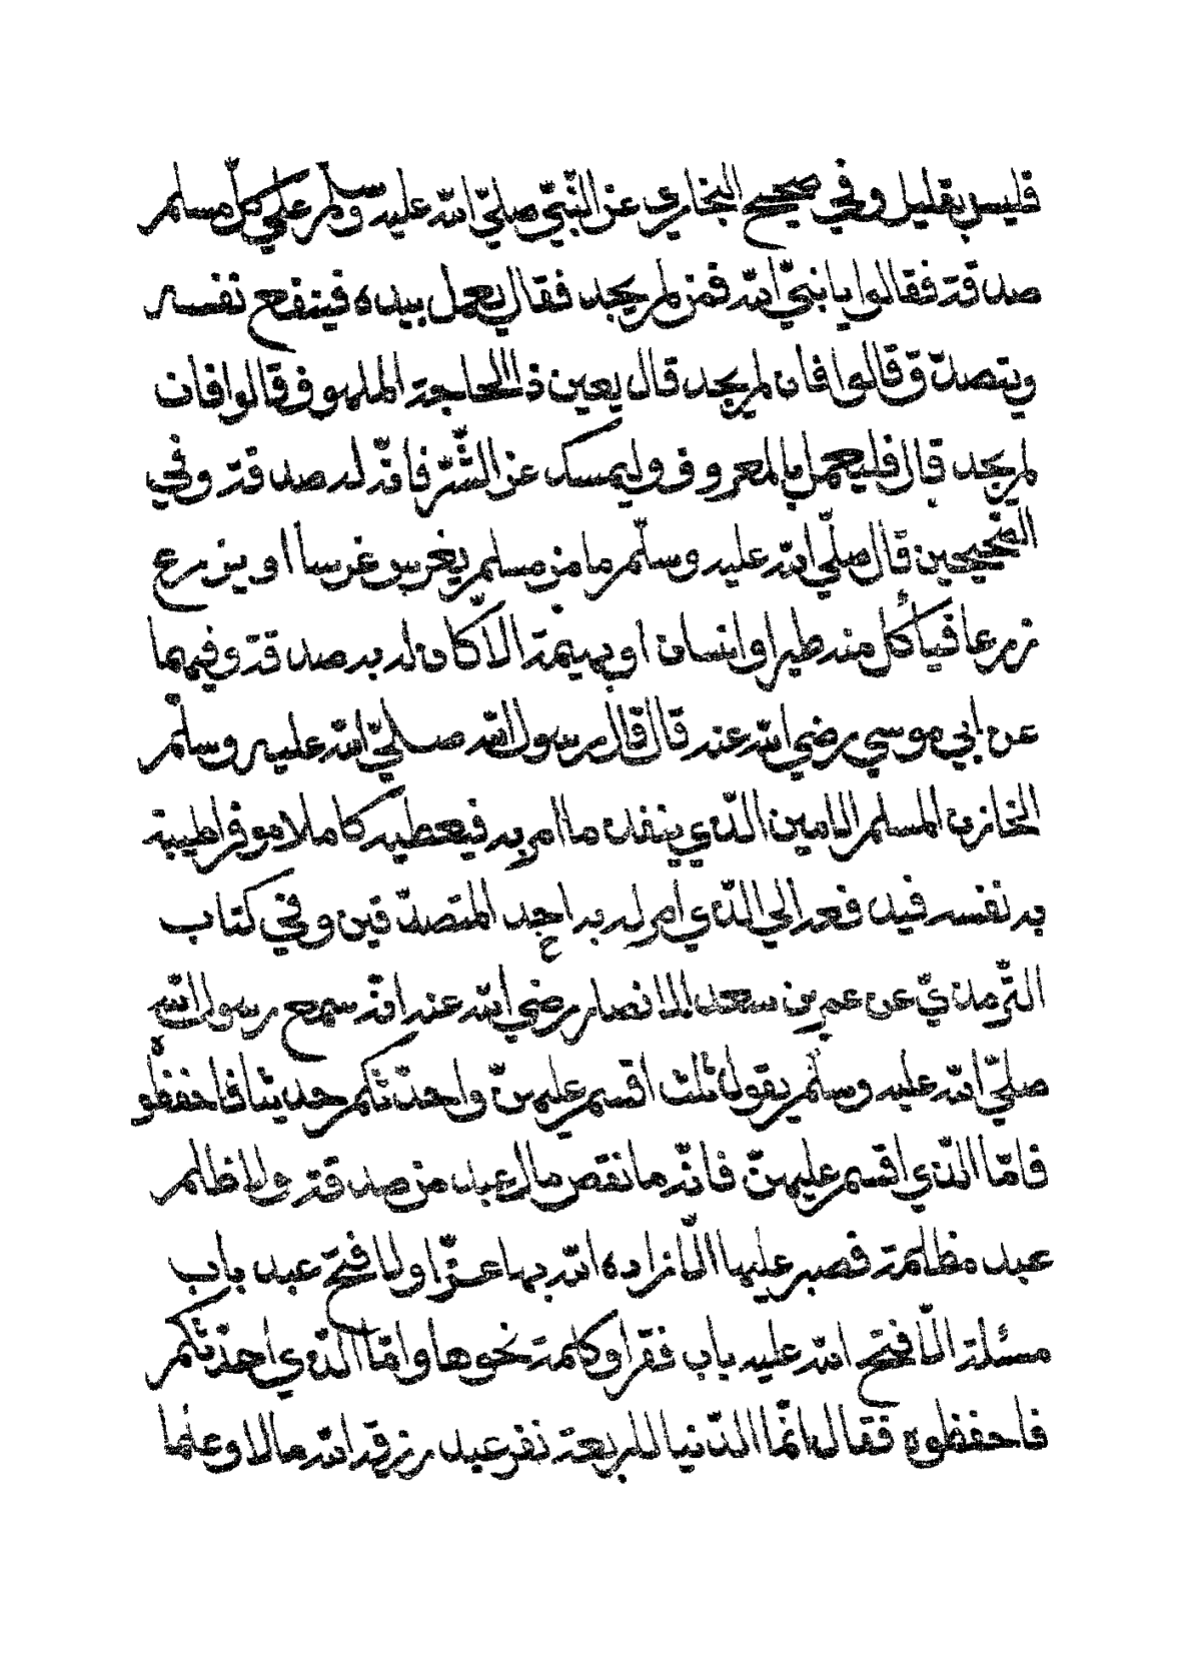 فليس بقليل وفي صحيح البخاري عن النّبيّ صلّي الله عليه وسلّم علي كلّ مسلم
صدقة فقالوا يا نبيّ الله فمن لم يجد فقال يعمل بيده فينفع نفسه
ويتصدّق قالوا فان لم يجد قال يعين ذا الحاجة الملهوف قالوا فان
لم يجد قال فليعمل بالمعروف وليمسك عن الشّرّ فانّه له صدقة وفي
الصّحيحين قال صلّي الله عليه وسلّم ما من مسلم يغرس غرسا او يزرع
زرعا فيأكل منه طير او انسان او بهيمة الّا كان له به صدقة وفيهما
عن ابي موسي رضي الله عنه قال قال رسول الله صلّي الله عليه وسلّم
الخازن المسلم الامين الّذي ينفذ ما امر به فيعطيه كاملا موفرا طيبة
به نفسه فيدفعه الي الّذي امر له به احد المتصدّقين وفي كتاب
التّرمذيّ عن عمر بن سعد الانصاري رضي الله عنه انّه سمع رسول الله
صلّي الله عليه وسلّم يقول ثلث اقسم عليهنّ واحدّثكم حديثا فاحفظوه
فامّا الّذي اقسم عليهنّ فانّه ما نقص مال عبد من صدقة ولا ظلم
عبد مظلمة فصبر عليها الّا زاده الله بها عزّا ولا فتح عبد باب
مسئلة الّا فتح الله عليه باب فقر او كلمة نحوها وامّا الّذي احدّثكم
فاحفظوه فقال انّما الدّنيا لاربعة نفر عبد رزقه الله مالا وعلما